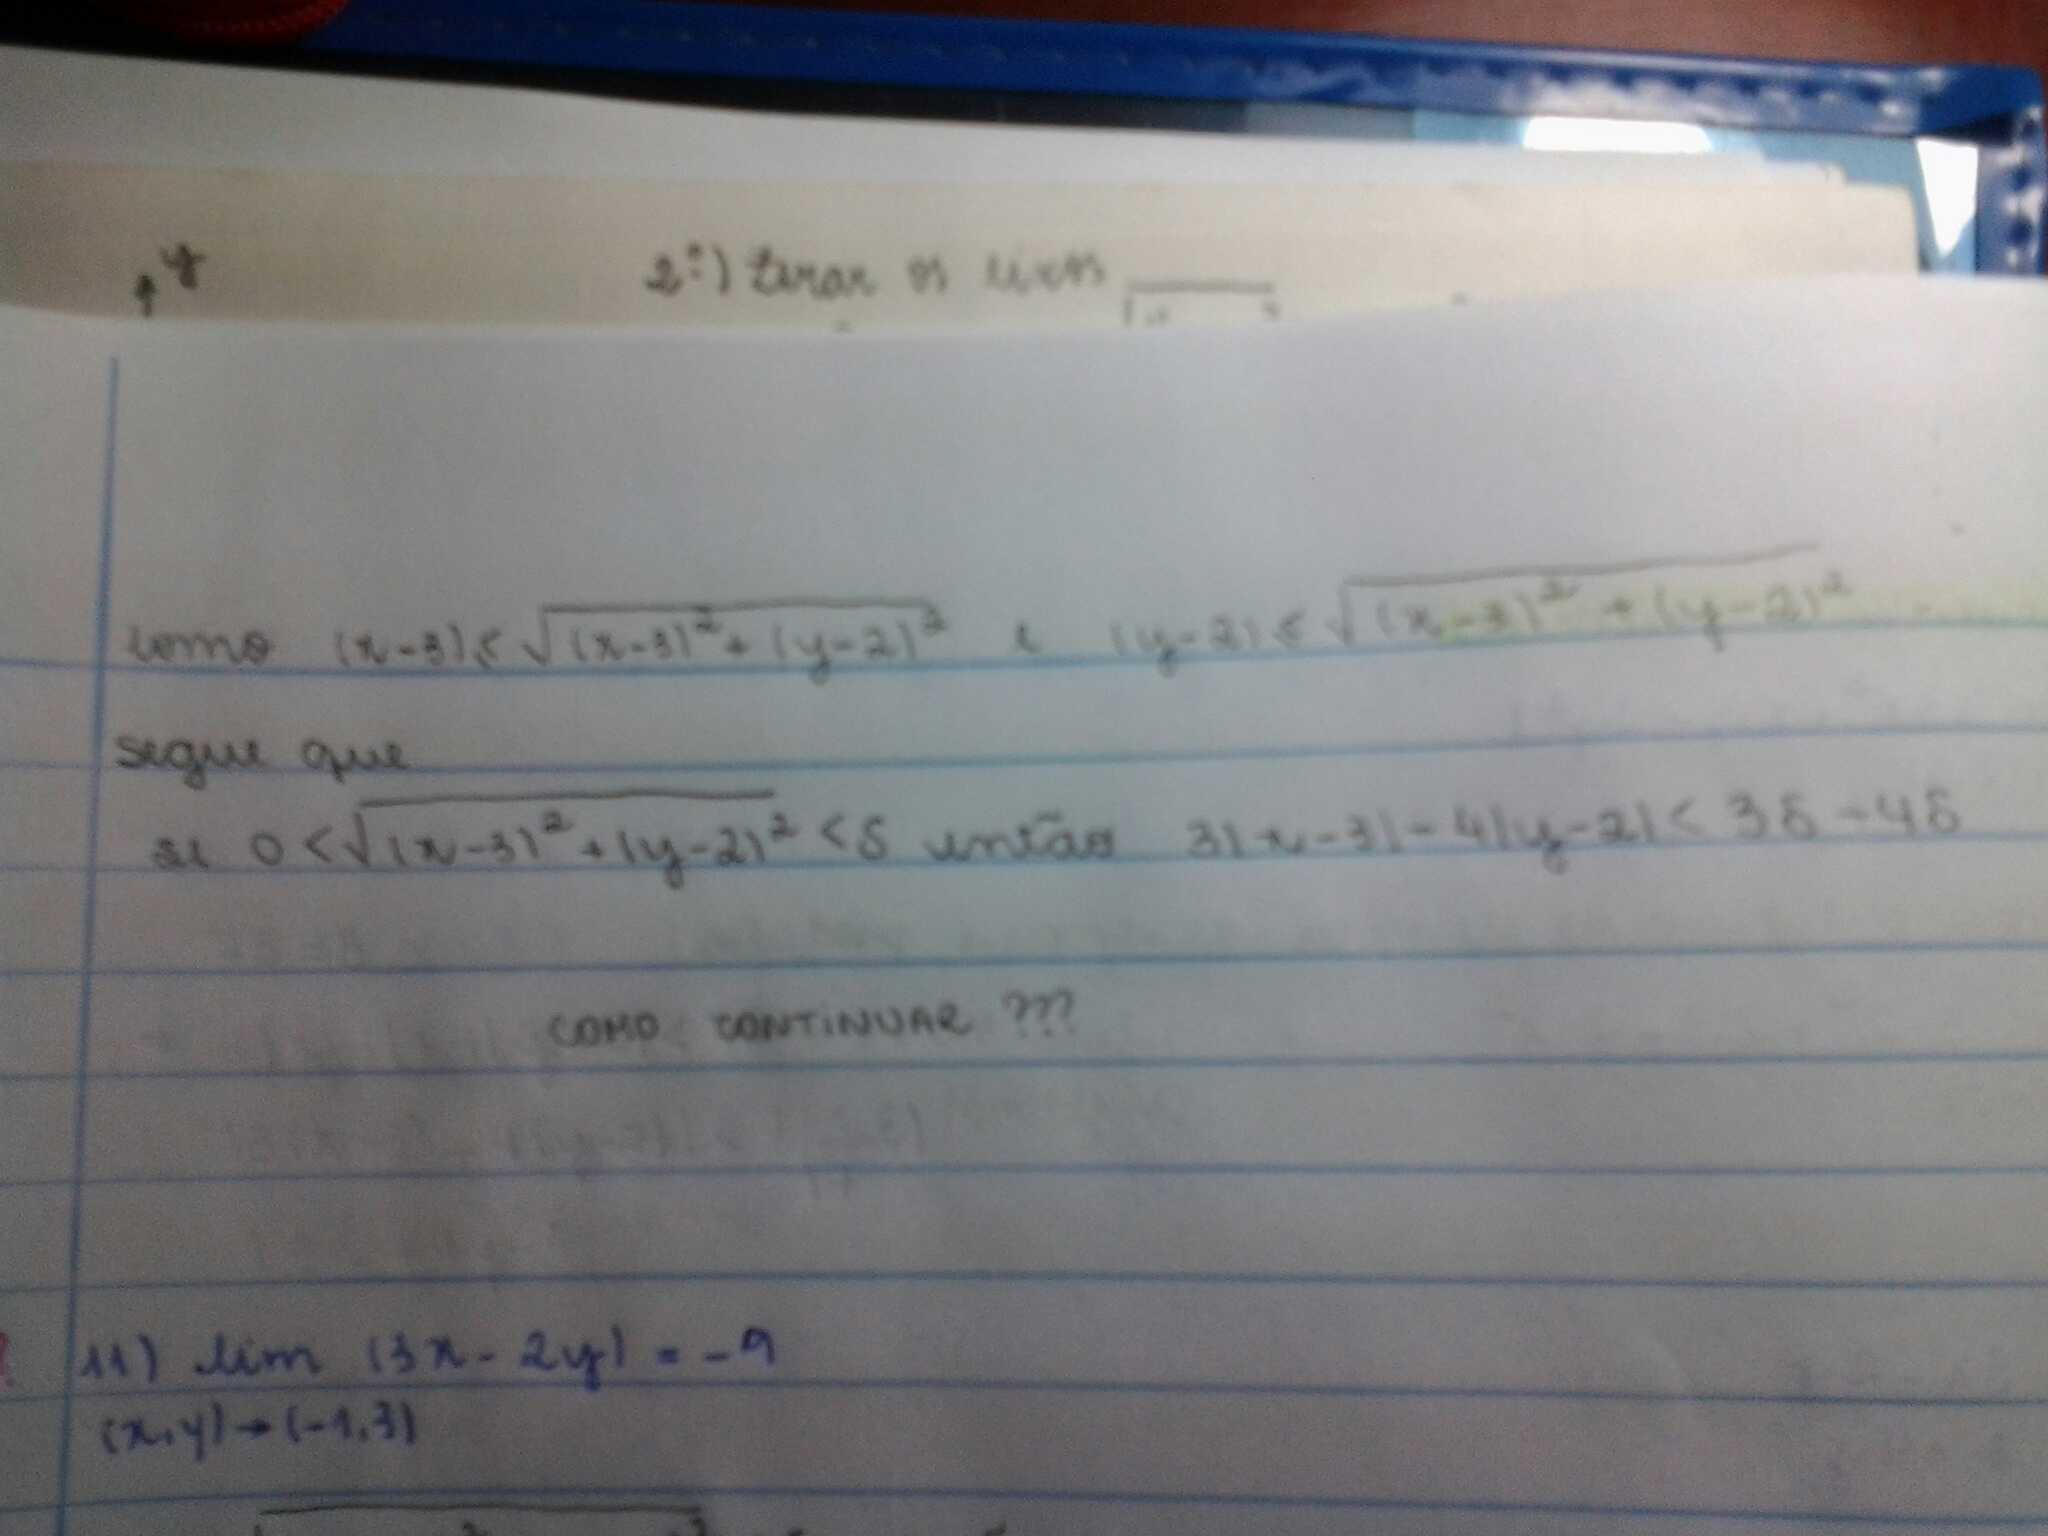 y
2º) tirar os
como |x-3| ≤ √(x-3)² + (y-2)² e |y-2| ≤ √(x-3)² + (y-2)²
segue que
se 0 < √(x-3)² + (y-2)² < δ então 3|x-3| - 4|y-2| < 3δ - 4δ
COMO CONTINUAR ???
11) lim (3x - 2y) = -9
(x,y)→(-1,3)